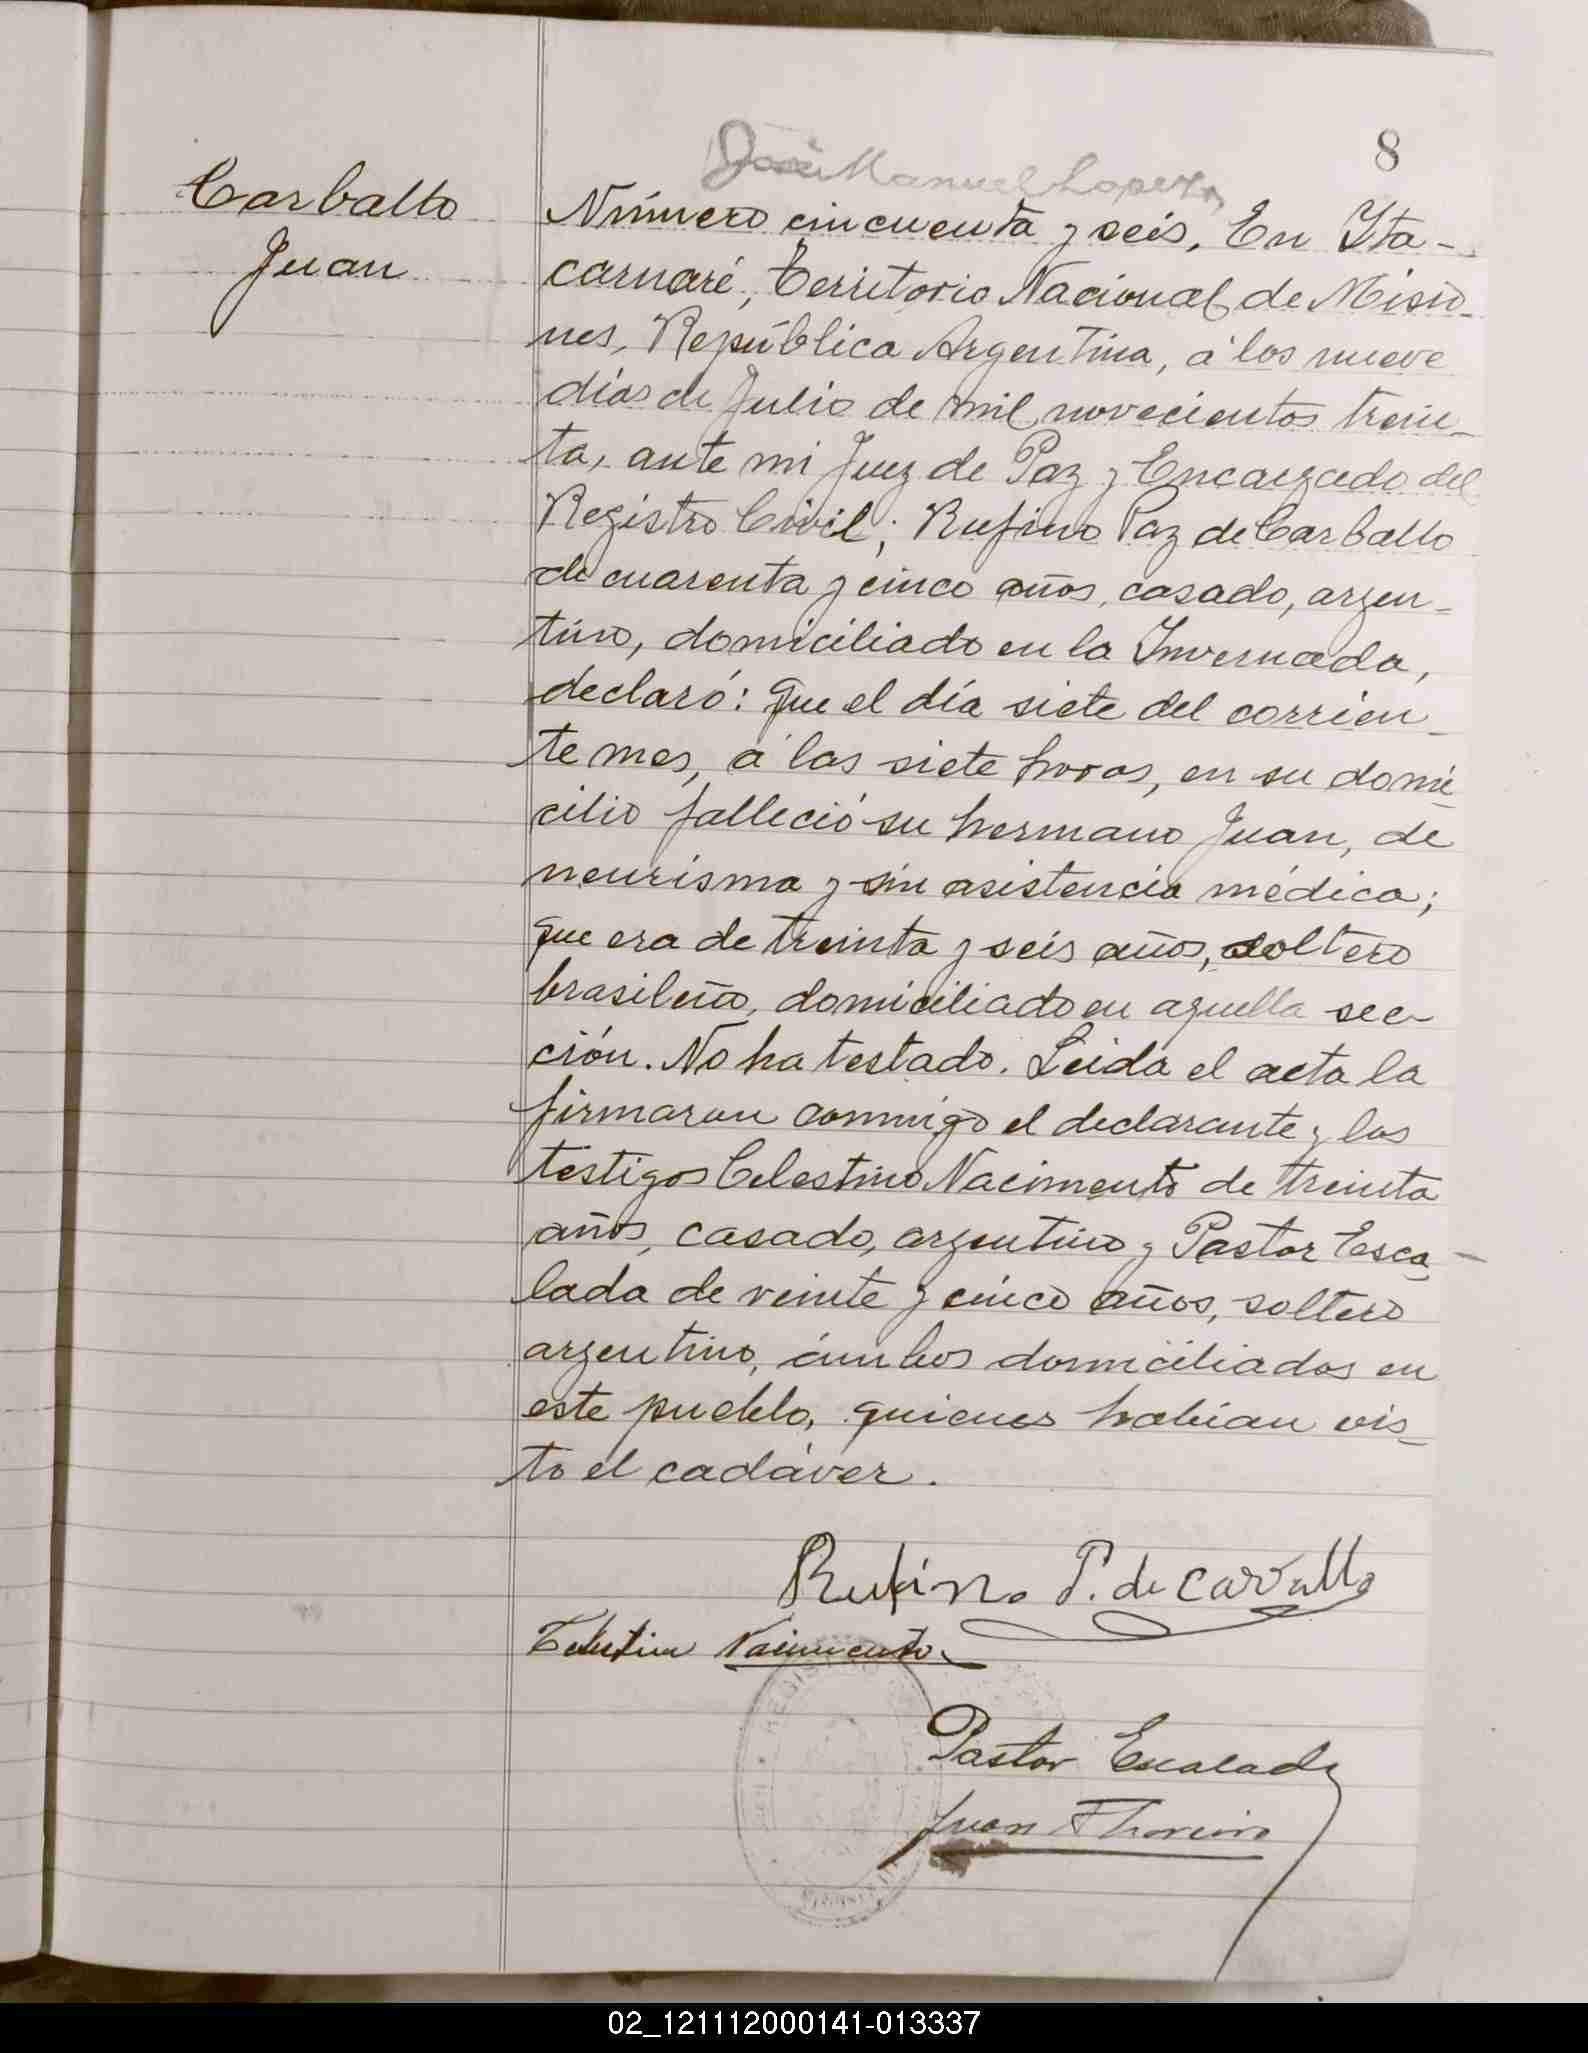 8
José Manuel Lopez
Carballo
Juan
Número cincuenta y seis, En Ita-
caruaré, Territorio Nacional de Misio-
nes, República Argentina, á los nueve
días de Julio de mil novecientos trein-
ta, ante mi Juez de Paz y Encargado del
Registro Civil; Rufino Paz de Carballo
de cuarenta y cinco años, casado, argen-
tino, domiciliado en la Invernada,
declaró: que el día siete del corrien-
te mes, á las siete horas, en su domi-
cilio falleció su hermano Juan, de
neurisma y sin asistencia médica;
que era de treinta y seis años, soltero
brasileño, domiciliado en aquella sec-
ción. No ha testado. Leida el acta la
firmaron conmigo el declarante y los
testigos Celestino Nacimento de treinta
años, casado, argentino y Pastor Esca-
lada de veinte y cinco años, soltero
argentino, ámbos domiciliados en
este pueblo, quienes habían vis-
to el cadáver.
Rufino P. de Carvallo
Celestino Nacimento
Pastor Escalada
Juan
02_121112000141-013337